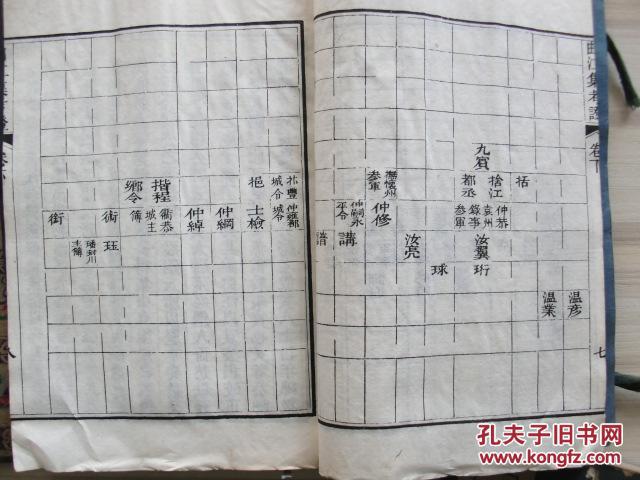 曲江集考證
卷下
七
溫彥
溫業
括
捨江
都丞
九賓
仲恭
袁州
錄事
參軍
汝翼
珩
球
汝亮
撫懷州
參軍
仲修
仲嗣永
平令
講
譜
北豐
城令
挹
士檢
仲綱
仲綽
揩程
鄉令
衢恭
城主
簿
術
珏
璠封川
主簿
街
八
孔夫子旧书网
KONGFZ.COM